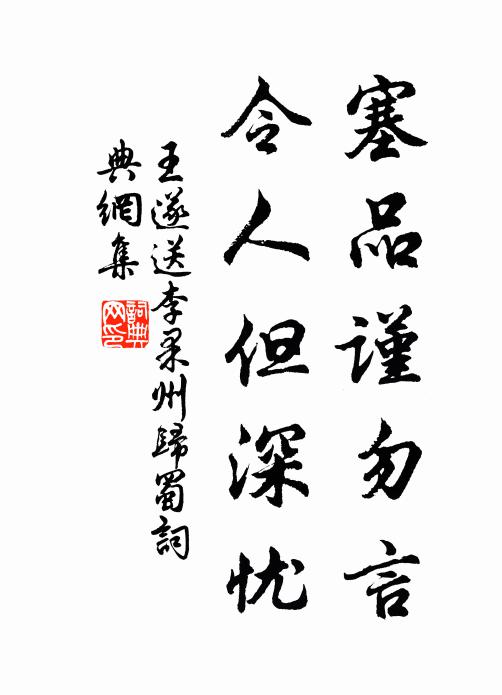 塞品谨勿言
令人但深忧
王遂送李果州歸蜀詞
典網集
詞典网印